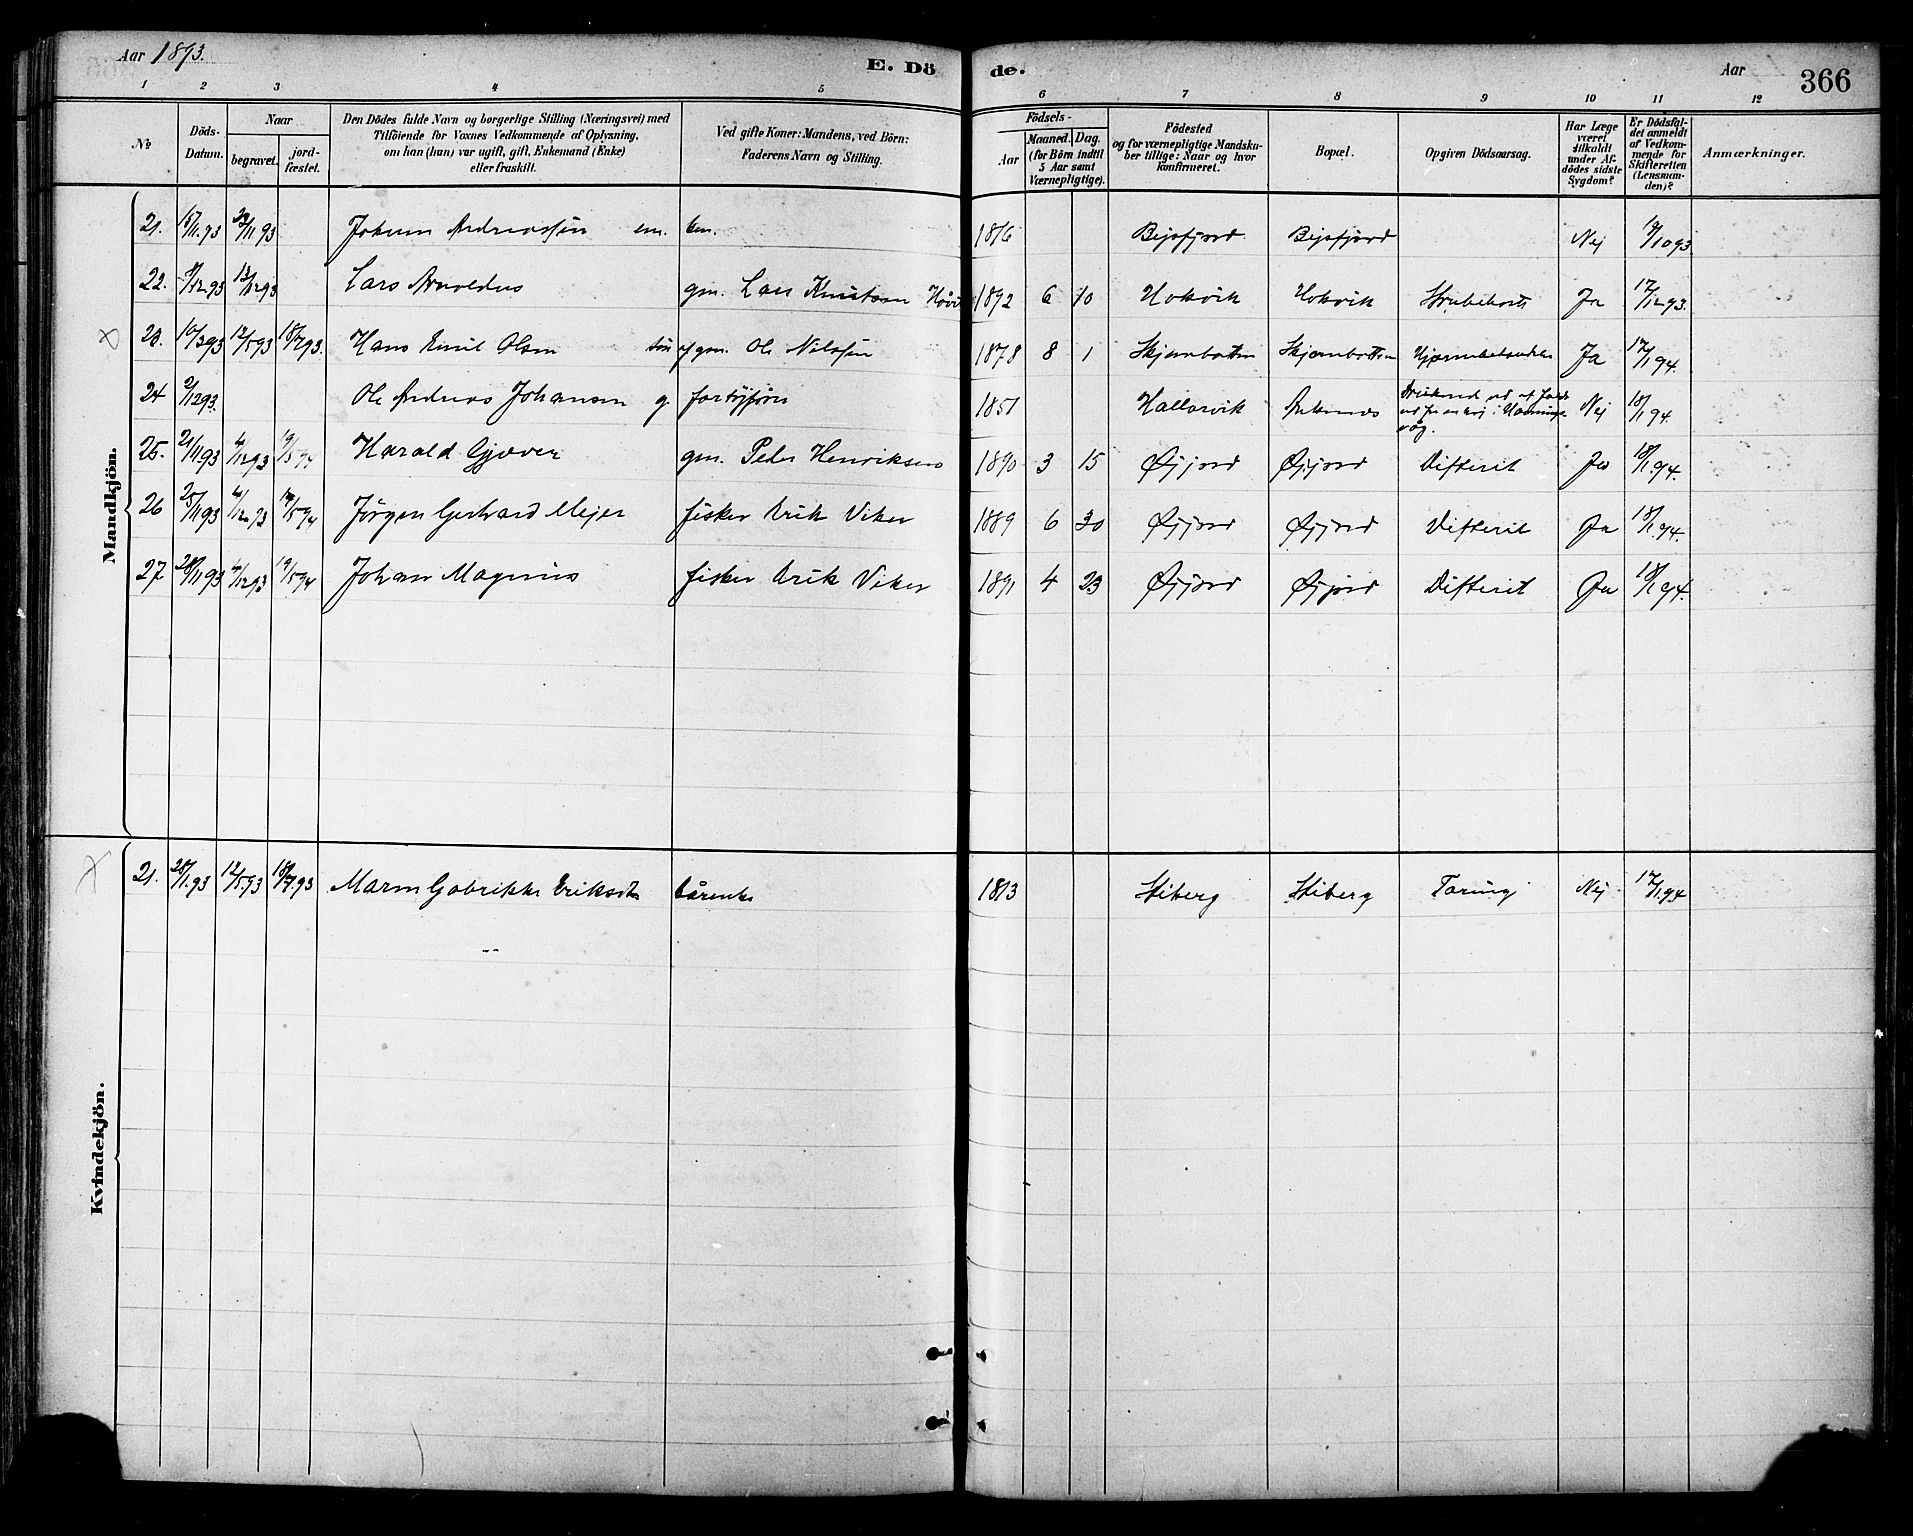 Aar 1893.
E. Dö
de.
Aar
366
1 2 3 4 5 6 7 8 9 10 11 12
No
Döds-Datum.
Naar
begravet.
jordfæstet.
Den Dödes fulde Navn og borgerlige Stilling (Næringsvei) med
Tilföiende for Voxnes Vedkommende af Oplysning,
om han (hun) var ugift, gift, Enkemand (Enke)
eller fraskilt.
Ved gifte Koner: Mandens, ved Börn:
Faderens Navn og Stilling.
Födsels-
Aar
Maaned. Dag.
(for Börn indtil
5 Aar samt
Værnepligtige).
Födested
og for værnepligtige Mandskaber tillige: Naar og hvor
konfirmeret.
Bopæl.
Opgiven Dödsaarsag.
Har Læge
været
tilkaldt
under Afdödes sidste
Sygdom?
Er Dödsfaldet anmeldt
af Vedkommende for
Skifteretten
(Lensmanden)?
Anmærkninger.
Mandkjön.
21. 15/11.93 Andreassen em. 1816 Beisfjord Beisfjord Nej
22. Lars Arnoldus gm. Lars Knutsen 1892 6 10 Hokvik Hokvik Strubehoste Ja 17/12 93.
23. 10/3 93 12/5 93 18/7 93. Hans Emil Olsen søn af gm. Ole Nilssen 1878 8 1 Skjombotten Skjombotten Ja 17/1 94.
24 2/12 93. Ole Andreas Johansen g. 1851 Hallarvik Ankenes Nej 18/1 94.
25. 21/11 93 4/12 93 Harald Gjæver gm. Peder Henriksen 1890 3 15 Øijord Øijord Difterit Ja 18/1 94.
26 25/11 93 4/12 93 19/5 94 Jørgen Gerhard Mejer fisker Erik Viker 1889 6 30 Øijord Øijord Difterit Ja 18/1 94.
27 28/11 93 4/12 93 19/5 94 Johan Magnus fisker Erik Viker 1891 4 23 Øijord Øijord Difterit Ja 18/1 94.
Kvindekjön.
21. 28/1.93 12/5.93 18/7.93 Maren Gabrikke Eriksdtr 1813 Stiberg Stiberg Tæring Nej 17/1 94